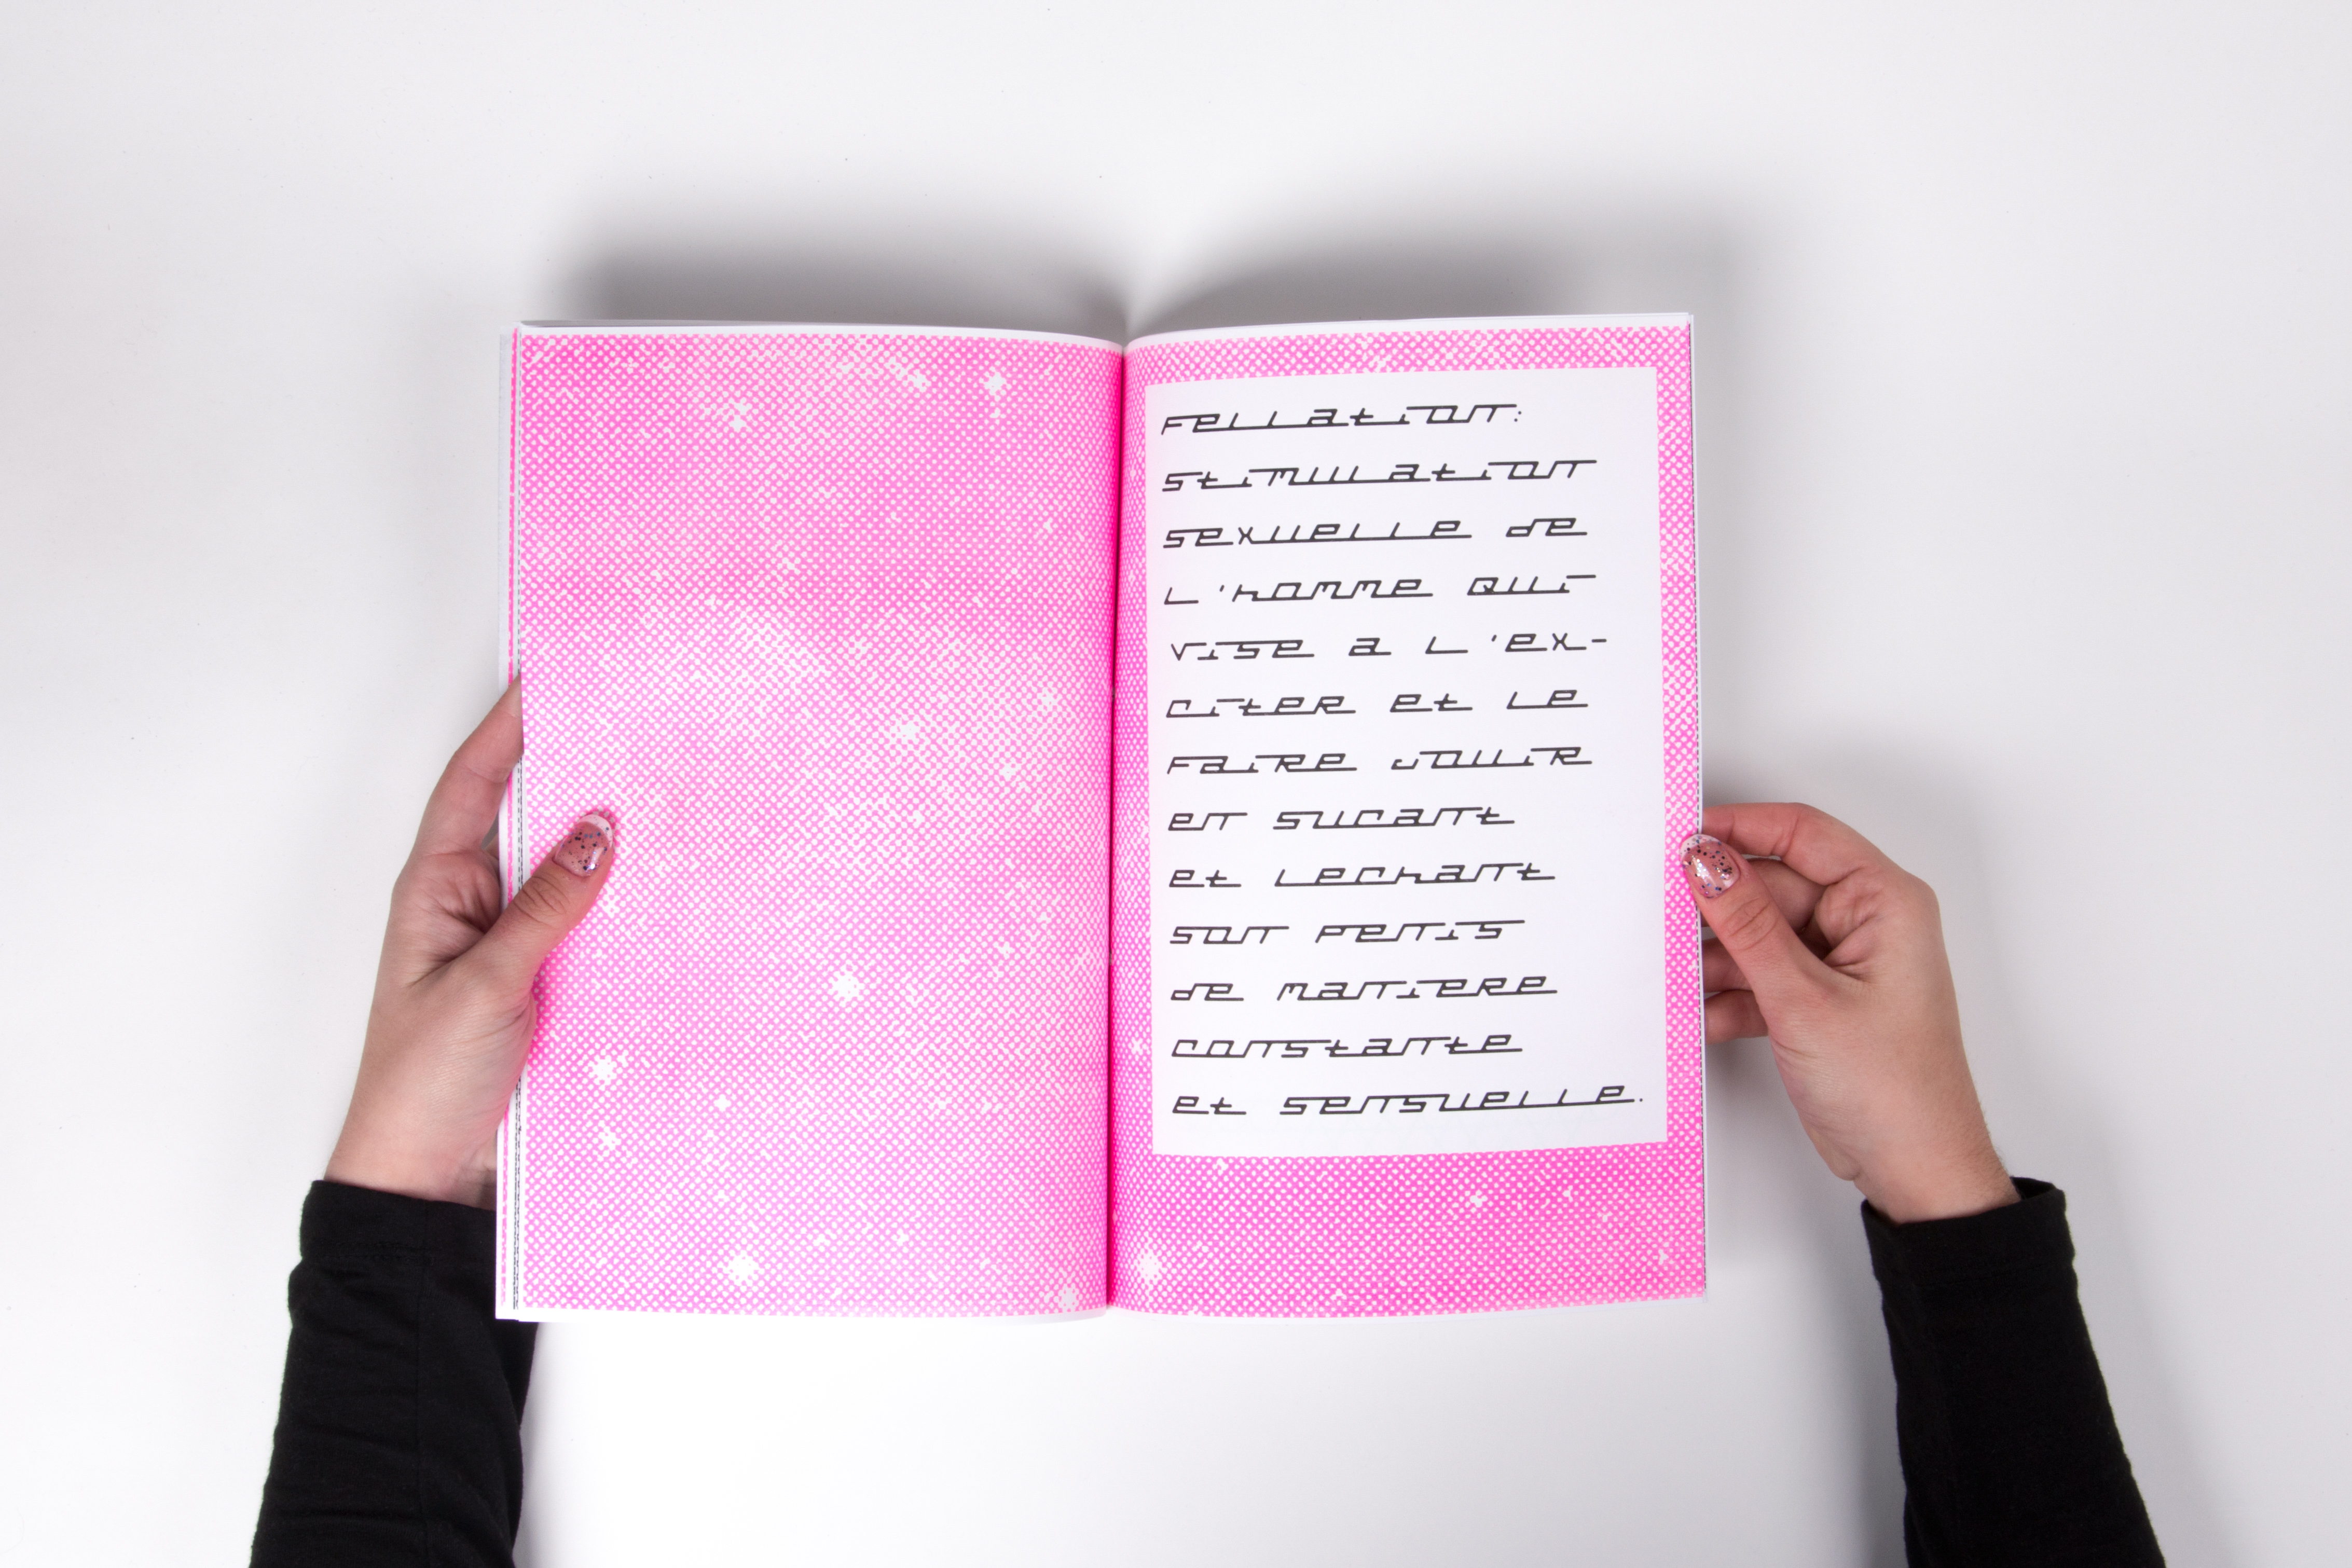 Fellation:
stimulation
sexuelle de
l'homme qui
vise a l'ex-
citer et le
faire jouir
en sucant
et lechant
son penis
de maniere
constante
et sensuelle.